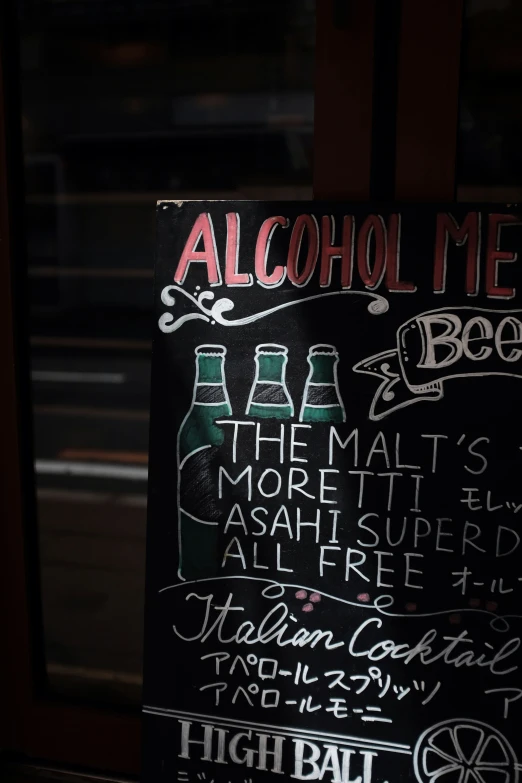 ALCOHOL ME
Bee
THE MALT'S
MORETTI モレッ
ASAHI SUPER D
ALL FREE オール
Italian Cocktail
アペロールスプリッツ
アペロールモーニ
HIGH BALL